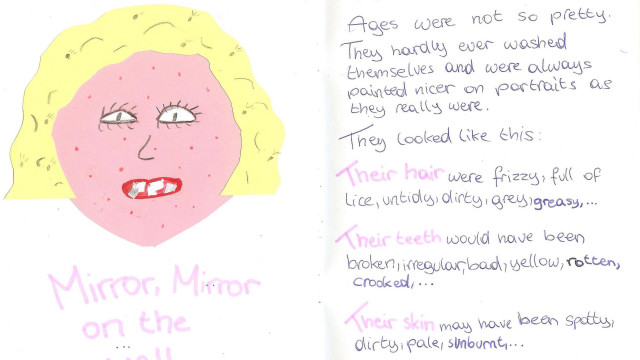 Mirror, Mirror
on the
wall
...
Ages were not so pretty.
They hardly ever washed
themselves and were always
painted nicer on portraits as
they really were.
They looked like this:
Their hair were frizzy, full of
lice, untidy, dirty, grey, greasy,...
Their teeth would have been
broken, irregular, bad, yellow, rotten,
crooked,...
Their skin may have been spotty,
dirty, pale, sunburnt,...